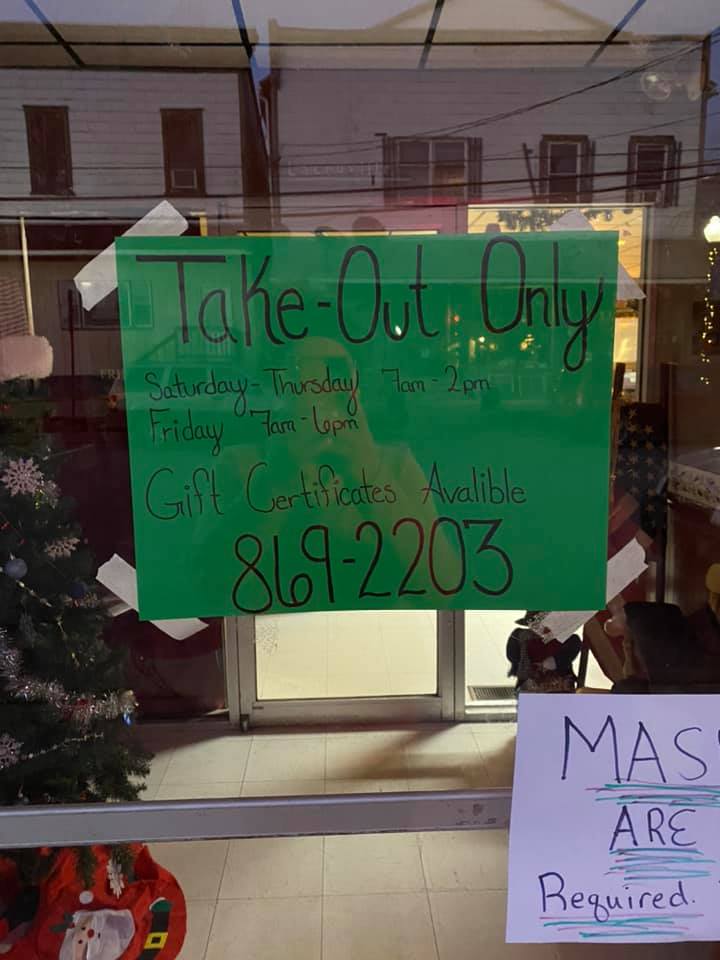 Take-Out Only
Saturday-Thursday 7am-2pm
Friday 7am-6pm
Gift Certificates Avalible
869-2203
MAS
ARE
Required.